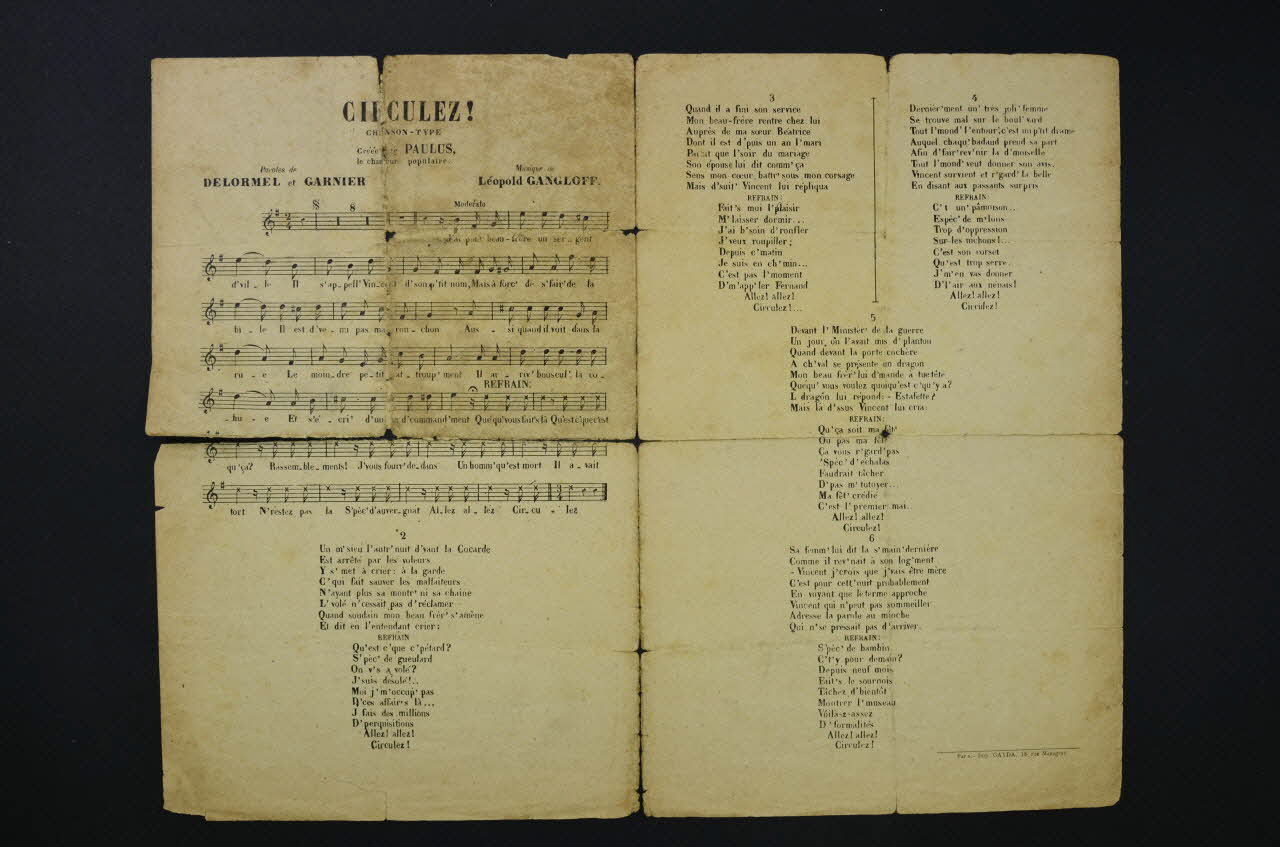 CIRCULEZ!
CHANSON-TYPE
Créée par PAULUS,
le chanteur populaire.
Paroles de
DELORMEL et GARNIER
Musique de
Léopold GANGLOFF.
Moderato
8
pour beau-frère un ser-gent
d'vil-le Il s'ap-pell' Vin-cent d'son p'tit nom, Mais à forc' de s'fair' de la
bi-le Il est d've-nu pas mal ron-chon Aus-si quand il voit dans la
ru-e Le moin-dre pe-tit at-troup'ment Il ar-riv' bouscul' la co-
REFRAIN:
-hu-e Et s'é-cri' d'un d'command'ment Qué qu'vous fait's là Qu'est c'que c'est
qu'ça? Rassem-ble-ments! J'vous fourr' de-dans Un homm' qu'est mort Il a-vait
tort N'restez pas là S'pèc' d'auver-gnat Al-lez al-lez Cir-cu-lez
2
Un m'sieu l'autr' nuit d'vant la Cocarde
Est arrêté par les voleurs
Y s'met à crier: à la garde
C'qui fait sauver les malfaiteurs
N'ayant plus sa montr' ni sa chaîne
L'volé n'cessait pas d'réclamer
Quand soudain mon beau frèr' s'amène
Et dit en l'entendant crier:
REFRAIN
Qu'est c'que c'pétard?
S'pèc' de gueulard
On v's a volé?
J'suis désolé!..
Moi j'm'occup' pas
D'ces affair's là...
J'fais des millions
D'perquisitions
Allez! allez!
Circulez!
3
Quand il a fini son service
Mon beau-frère rentre chez lui
Auprès de ma sœur Béatrice
Dont il est d'puis un an l'mari
Parait que l'soir du mariage
Son épouse lui dit comm' ça
Sens mon cœur battr' sous mon corsage
Mais d'suit' Vincent lui répliqua
REFRAIN:
Fait's moi l'plaisir
M'laisser dormir...
J'ai b'soin d'ronfler
J'veux roupiller;
Depuis c'matin
Je suis en ch'min...
C'est pas l'moment
D'm'app'ler Fernand
Allez! allez!
Circulez!...
4
Dernièr'ment un' très joli' femme
Se trouve mal sur le boul'vard
Tout l'mond' l'entour', c'est un p'tit drame
Auquel chaqu' badaud prend sa part
Afin d'fair' rev'nir la d'moiselle
Tout l'mond' veut donner son avis.
Vincent survient et r'gard' la belle
En disant aux passants surpris
REFRAIN:
C't un' pâmoison..
Espèc' de m'lons
Trop d'oppression
Sur les nichons!...
C'est son corset
Qu'est trop serre
J'm'en vas donner
D'l'air aux nénais!
Allez! allez!
Circulez!
5
Devant l'Minister' de la guerre
Un jour, on l'avait mis d'planton
Quand devant la porte cochère
A ch'val se présente un dragon
Mon beau frèr' lui d'mande à tue tête
Quéqu' vous voulez quoiqu'est c'qu'y a?
L'dragon lui répond: - Estafette?
Mais là d'ssus Vincent lui cria:
REFRAIN:
Qu'ça soit ma fêt'
Ou pas ma fêt'
Ça vous r'gard' pas
'Spèc' d'échalas
Faudrait tâcher
D'pas m'tutoyer...
Ma fêt' crédié
C'est l'premier mai..
Allez! allez!
Circulez!
6
Sa femm' lui dit la s'main' dernière
Comme il rev'nait à son log'ment
- Vincent j'crois que j'vais être mère
C'est pour cett' nuit probablement
En voyant que le terme approche
Vincent qui n'peut pas sommeiller
Adresse la parole au mioche
Qui n'se pressait pas d'arriver.
REFRAIN:
S'pèc' de bambin
C't'y pour demain?
Depuis neuf mois
Fait's le sournois
Tâchez d'bientôt
Montrer l'museau
Voilà-z-assez
D'formalités
Allez! allez!
Circulez!
Paris.- Imp. GAYDA, rue